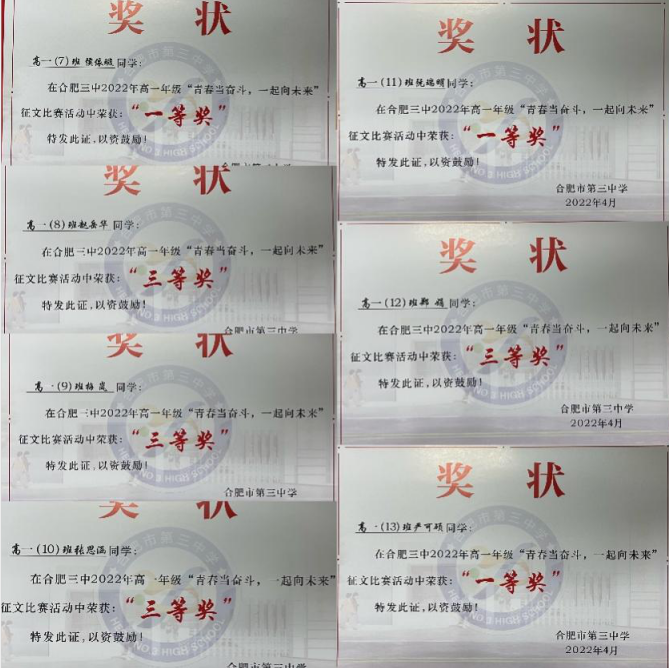 奖 状
高一(7)班 同学:
在合肥三中2022年高一年级“青春当奋斗，一起向未来”
征文比赛活动中荣获：“一等奖”
特发此证,以资鼓励!
合肥市第三中学
奖 状
高一(8)班赵岳华同学:
在合肥三中2022年高一年级“青春当奋斗，一起向未来”
征文比赛活动中荣获：“三等奖”
特发此证,以资鼓励!
合肥市第三中学
奖 状
高一(9)班梅岚 同学:
在合肥三中2022年高一年级“青春当奋斗，一起向未来”
征文比赛活动中荣获：“三等奖”
特发此证,以资鼓励!
合肥市第三中学
奖 状
高一(10)班张思涵同学:
在合肥三中2022年高一年级“青春当奋斗，一起向未来”
征文比赛活动中荣获：“三等奖”
特发此证,以资鼓励!
合肥市第三中学
奖 状
高一(11)班阮瑞明同学:
在合肥三中2022年高一年级“青春当奋斗，一起向未来”
征文比赛活动中荣获：“一等奖”
特发此证,以资鼓励!
合肥市第三中学
2022年4月
奖 状
高一(12)班郑 娟 同学:
在合肥三中2022年高一年级“青春当奋斗，一起向未来”
征文比赛活动中荣获：“三等奖”
特发此证,以资鼓励!
合肥市第三中学
2022年4月
奖 状
高一(13)班严可硕同学:
在合肥三中2022年高一年级“青春当奋斗，一起向未来”
征文比赛活动中荣获：“一等奖”
特发此证,以资鼓励!
合肥市第三中学
2022年4月